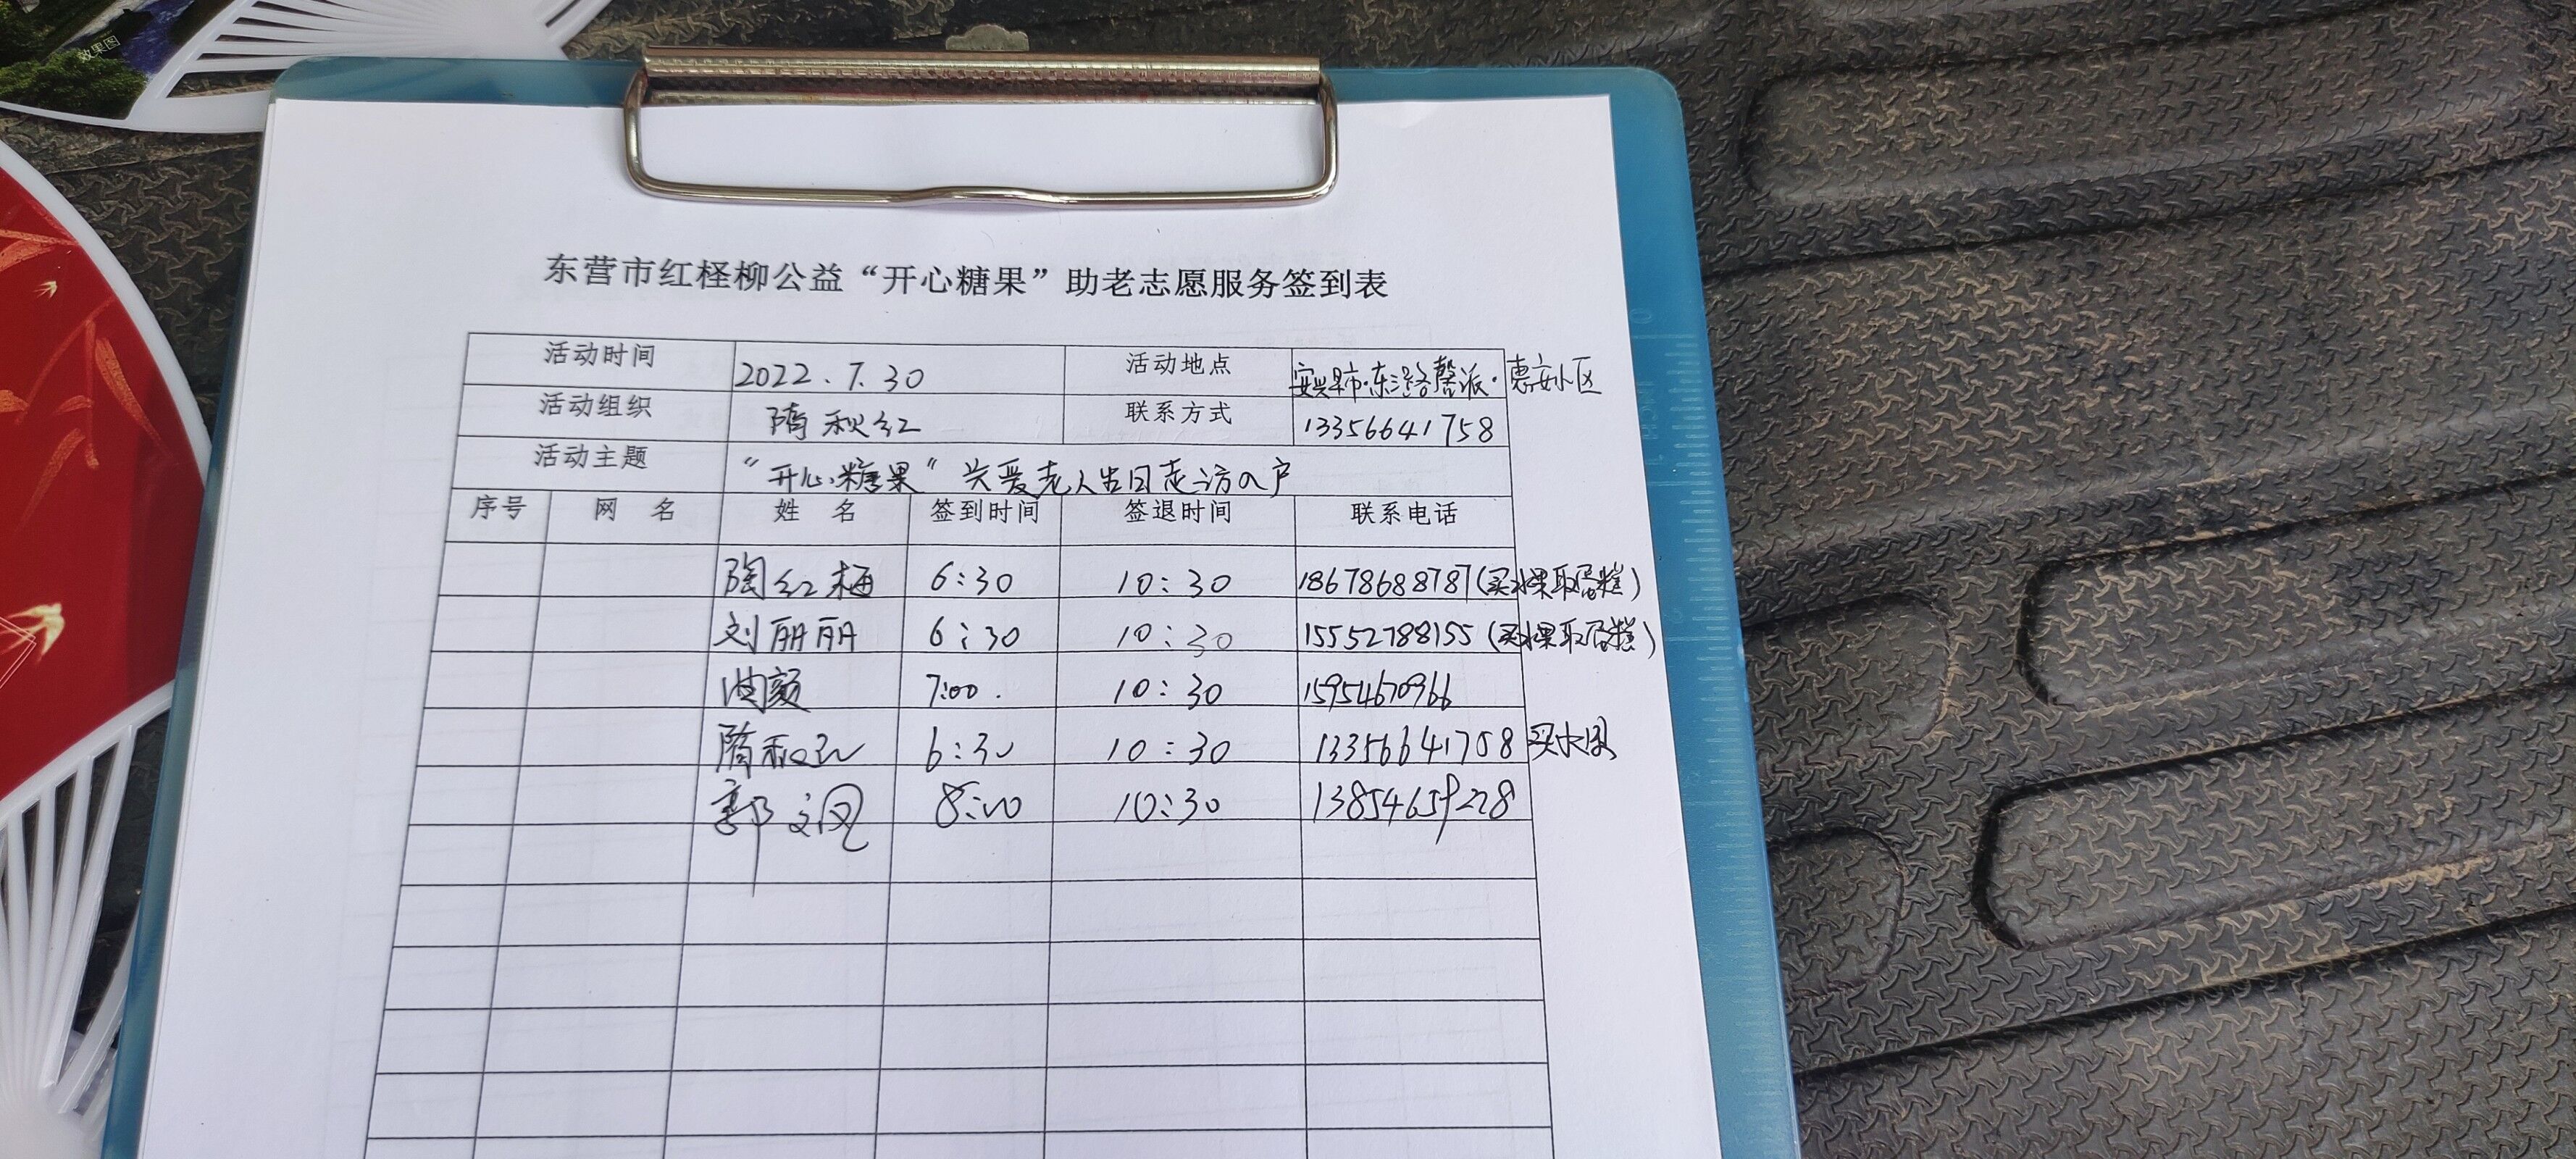 效果图
东营市红柽柳公益“开心糖果”助老志愿服务签到表
活动时间 2022.7.30 活动地点 安兴早市·东三路馨派·惠安小区
活动组织 隋秋红 联系方式 13356641758
活动主题 “开心糖果”关爱老人生日走访入户
序号 网 名 姓 名 签到时间 签退时间 联系电话
陶红梅 6:30 10:30 18678688787(买水果取蛋糕)
刘丽丽 6:30 10:30 15552788155(买水果取蛋糕)
7:00. 10:30 15954670966
隋秋红 6:30 10:30 13356641758 买水果
郭文 8:00 10:30 13854659228